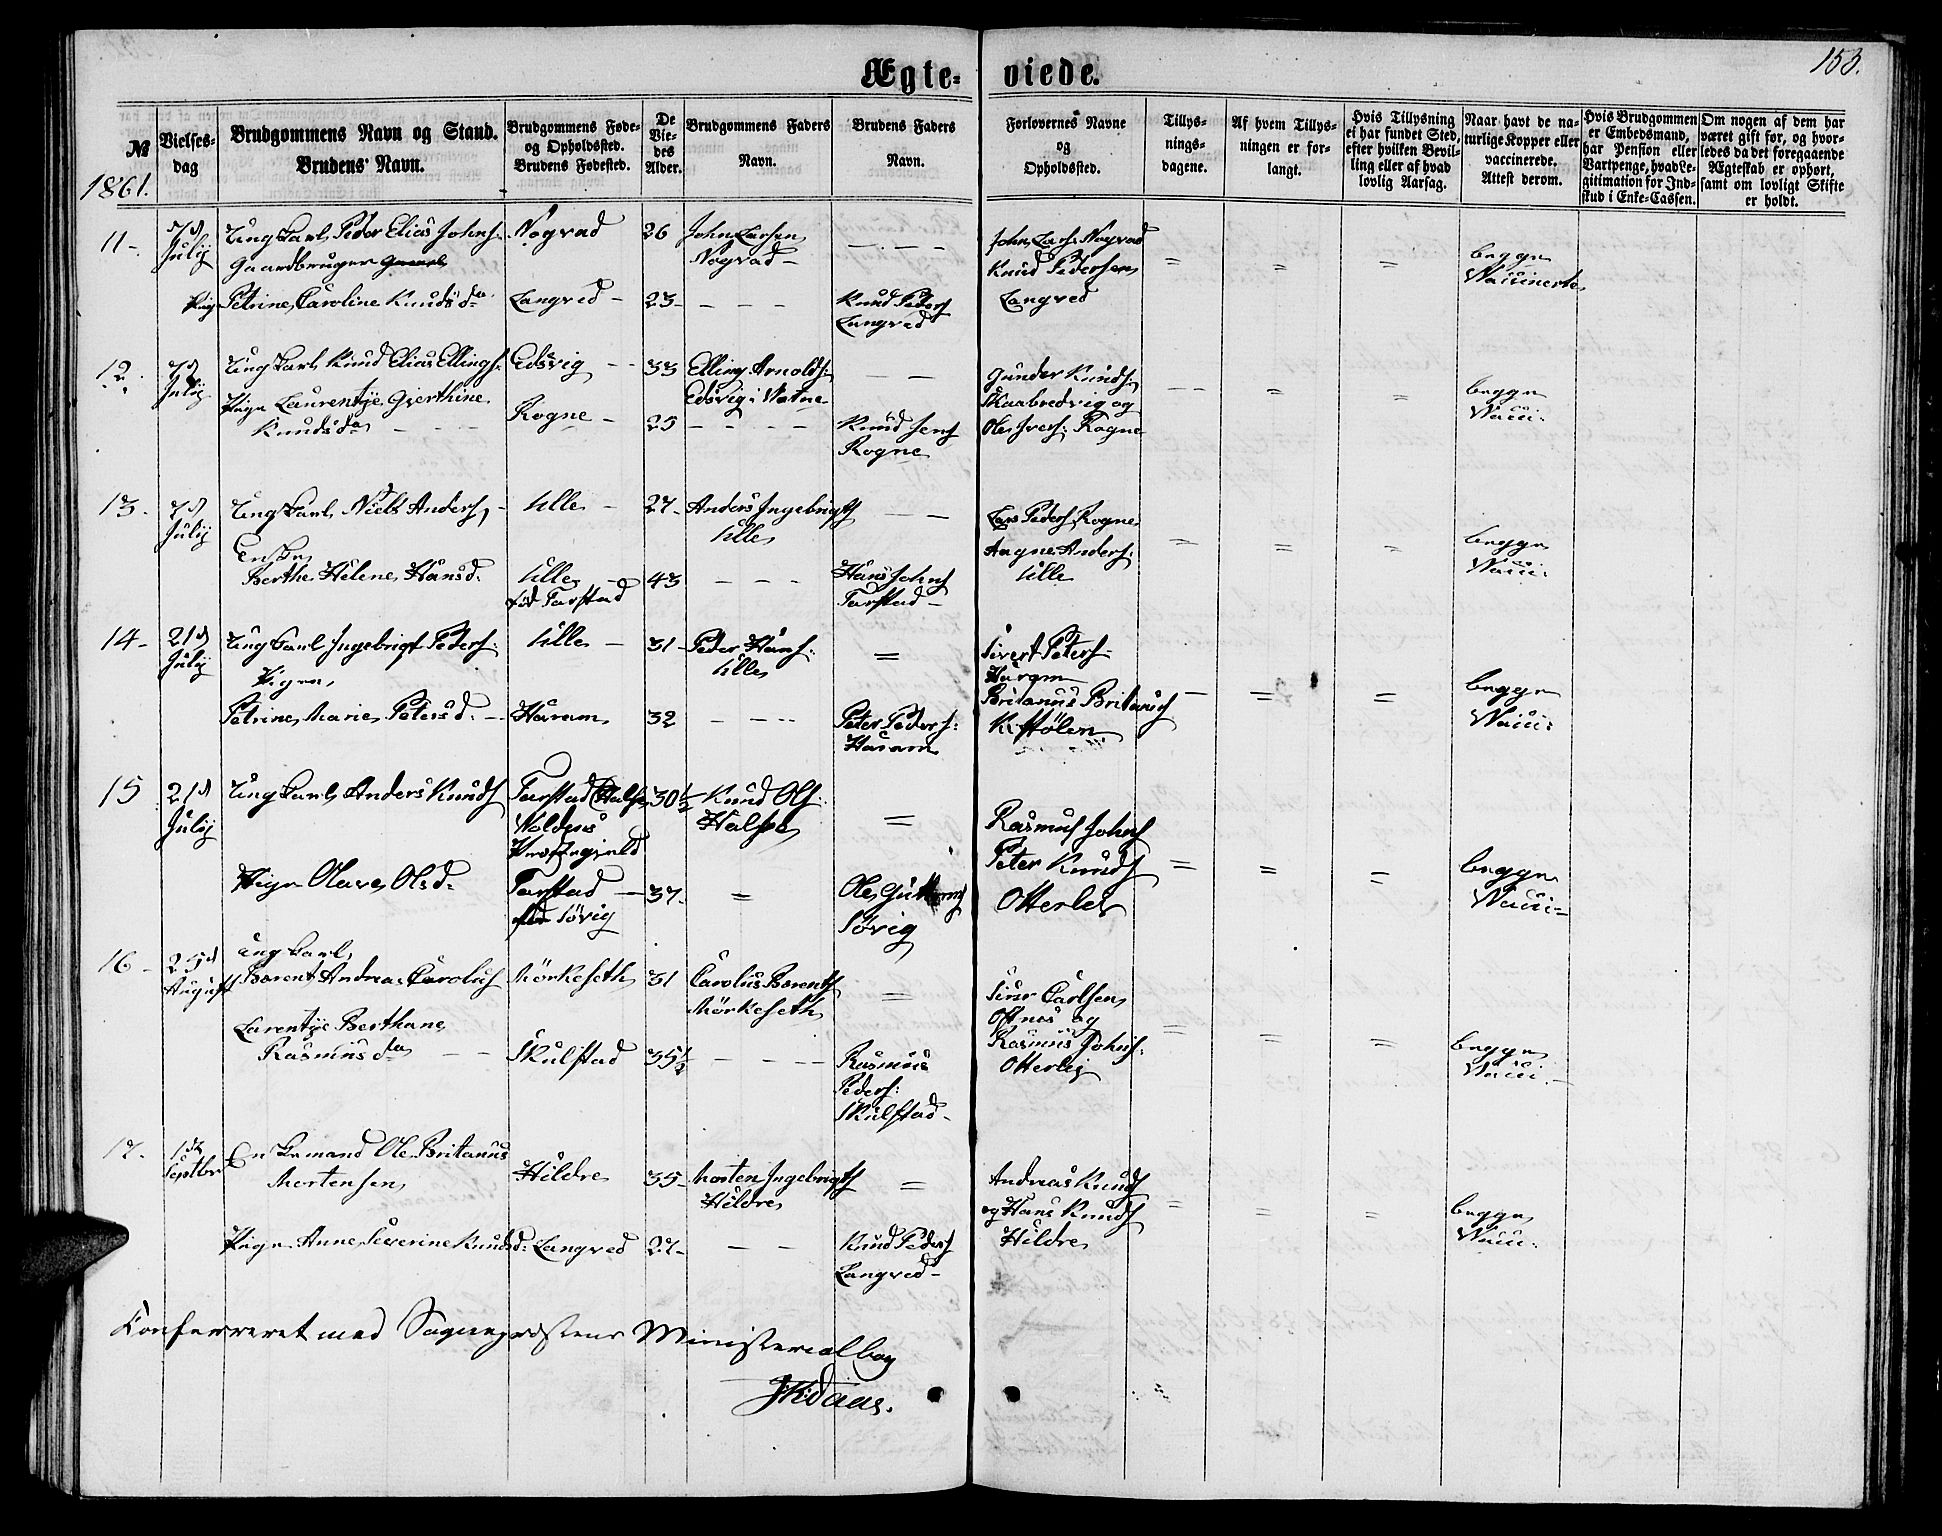 153.
Ægte- viede.
№
1861.
Vielses-
dag
Brudgommens Navn og Stand.
Brudens Navn.
Brudgommens Føde-
og Opholdssted.
Brudens Fødested.
De
Vie-
des
Alder.
Brudgommens Faders
Navn.
Brudens Faders
Navn.
Forlovernes Navne
og
Opholdssted.
Tillys-
nings-
dagene.
Af hvem Tillys-
ningen er for-
langt.
Hvis Tillysning
ei har fundet Sted,
efter hvilken Bevil-
ling eller af hvad
lovlig Aarsag.
Naar havt de na-
turlige Kopper eller
vaccinerede.
Attest derom.
Hvis Brudgommen
er Embedsmand,
har Pension eller
Vartpenge, hvad Le-
gitimation for Ind-
skud i Enke-Cassen.
Om nogen af dem har
været gift før, og hvor-
ledes da det foregaaende
Ægteskab er ophørt,
samt om lovligt Skifte
er holdt.
11-
7d
Julij
Ungkarl Peder Elias Johns.
Gaardbruger
Nogvad
26
John Larsen
Nogvad-
John Lars. Nogvad
Knud Pedersen
Langved
begge
Vaccinerte
Pige Petrine Caroline Knudsda
Langved -
23-
Knud Peders
Langved
12.
7d
Julij
Ungkarl Knud Elias Ellings.
Edsvig --
33
Elling Arnolds.
Edsvig i Vatne
Gunder Knuds.
Skaabredvig og
Ole Ivers. Rogne
begge
Vacci.
Pige Laurentje Gjerthine
Knudsda
Rogne -
25
Knud Jens
Rogne
13.
7d
Julij
Ungkarl Niels Anders. -
Ulle -
27-
Anders Ingebrigts
Ulle
Lars Peders. Rogne
Aagne Anders.
Ulle
begge
Vacci.
Enke
Berthe Helene Hansd.
Ulle -
fød Farstad
43
Hans Johns
Farstad-
14-
21d
Julij
Ungkarl Ingebrigt Peders.
Ulle -
31-
Peder Hans.
Ulle
Sivert Peters-
Haram
Britanus Britanus
K. Stølen
begge
Vacci.
Pigen
Petrine Marie Petersd. -
Haram
32
Peter Peders.
Haram
15
21d
Julij
Ungkarl Anders Knuds
Farstad (Halse
Voldens
Præstegjeld
30½
Knud Ols.
Halse
Rasmus Johns
Peter Knuds
Otterlei
begge
Vacci-
Pige Olave Olsd.
Farstad -
fød Søvig
37.
Ole Guttorms
Søvig
16-
25d
August
Ungkarl
Barent Andreas Carolus
Mørkeseth
31
Carolus Barents
Mørkeseth
Carlsen
og
Rasmus Johns.
Otterlei
begge
Vacci.
Larentje Berthane
Rasmusda --
Skulstad
35½
Rasmus
Peders.
Skulstad-
17.
1ste
Septbr
Enkemand Ole Britanus
Mortensen
Hildre
35-
Morten Ingebrigts
Hildre
Andreas Knuds
og Hans Knuds
Hildre
begge
Vacci.
Pige Anne Severine Knudsd.
Langved
27-
Knud Peders
Langved-
Konfereret med Sognepræstens Ministerialbog